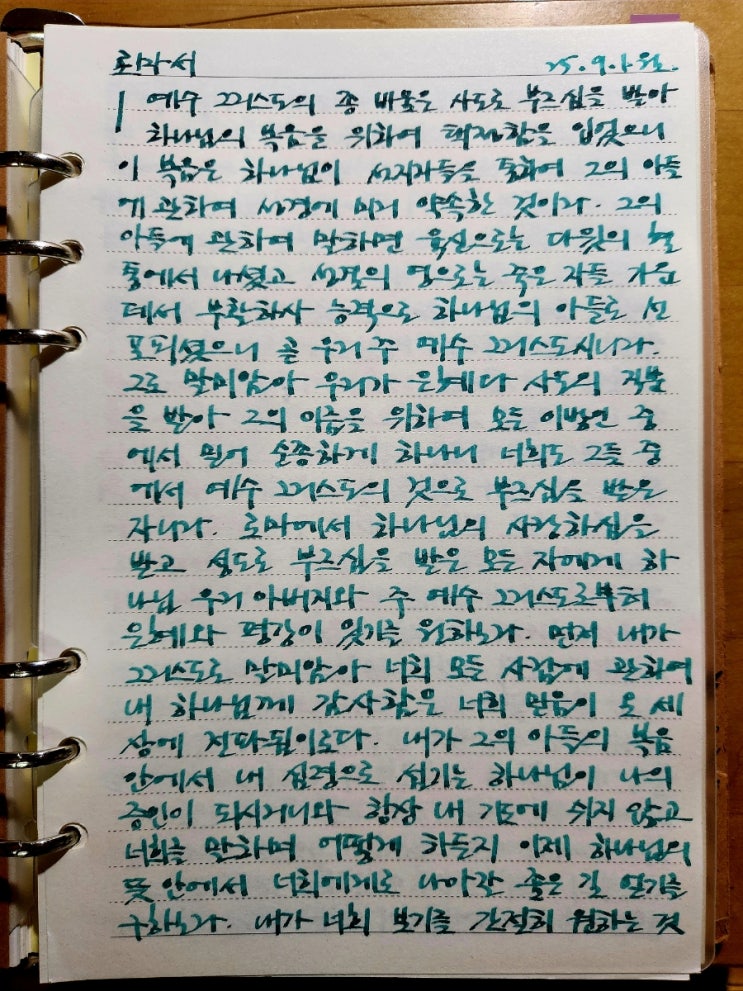 로마서 25.9.1 월.
1 예수 그리스도의 종 바울은 사도로 부르심을 받아
하나님의 복음을 위하여 택정함을 입었으니
이 복음은 하나님이 선지자들을 통하여 그의 아들
에 관하여 성경에 미리 약속한 것이라. 그의
아들에 관하여 말하면 육신으로는 다윗의 혈
통에서 나셨고 성결의 영으로는 죽은 자들 가운
데서 부활하사 능력으로 하나님의 아들로 선
포되셨으니 곧 우리 주 예수 그리스도시니라.
그로 말미암아 우리가 은혜와 사도의 직분
을 받아 그의 이름을 위하여 모든 이방인 중
에서 믿어 순종하게 하나니 너희도 그들 중
에서 예수 그리스도의 것으로 부르심을 받은
자니라. 로마에서 하나님의 사랑하심을
받고 성도로 부르심을 받은 모든 자에게 하
나님 우리 아버지와 주 예수 그리스도로부터
은혜와 평강이 있기를 원하노라. 먼저 내가
그리스도로 말미암아 너희 모든 사람에 관하여
내 하나님께 감사함은 너희 믿음이 온 세
상에 전파됨이로다. 내가 그의 아들의 복음
안에서 내 심령으로 섬기는 하나님이 나의
증인이 되시거니와 항상 내 기도에 쉬지 않고
너희를 말하며 어떻게 하든지 이제 하나님의
뜻 안에서 너희에게로 나아갈 좋은 길 얻기를
구하노라. 내가 너희 보기를 간절히 원하는 것